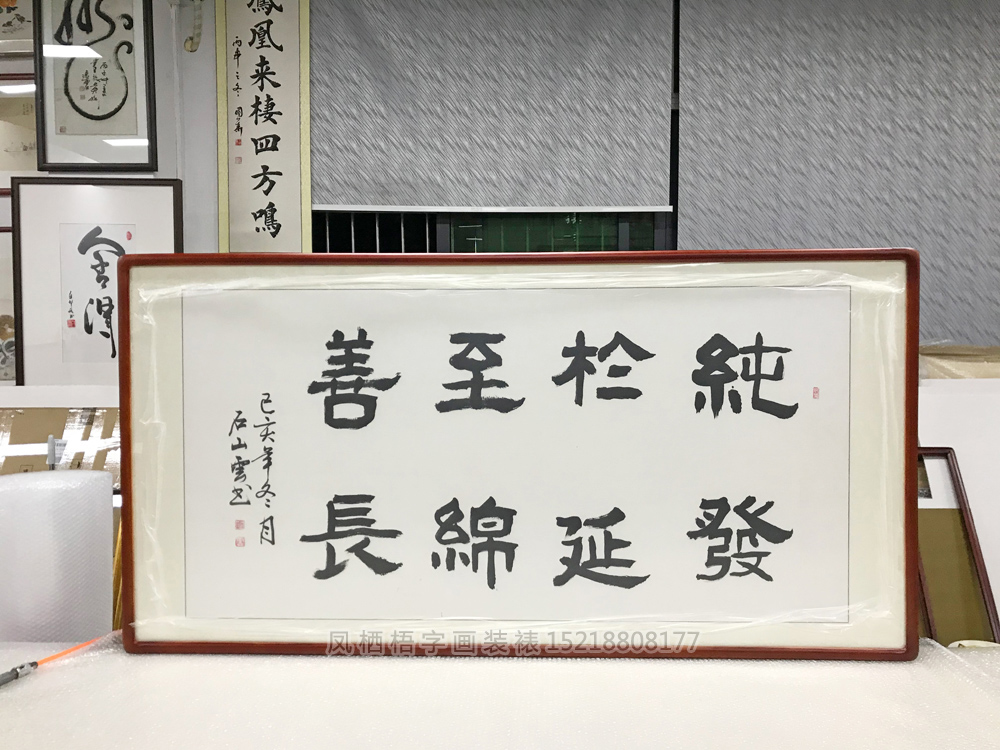 鳳凰来棲四方鳴
舍得
純於至善
發延綿長
己亥年冬月
石山雲书
凤栖梧字画装裱 15218808177